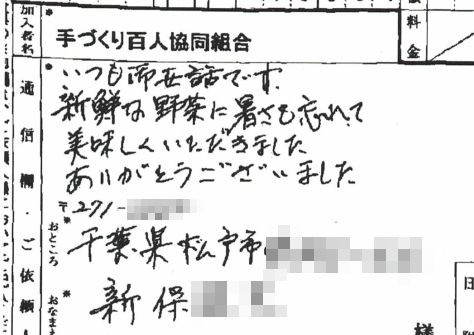 加入者名
手づくり百人協同組合
料金
通信欄・ご依頼人
いつもお世話です
新鮮な野菜に暑さも忘れて
美味しくいただきました
ありがとうございました
〒271-
おところ
千葉県松戸市
おなまえ
新保
様